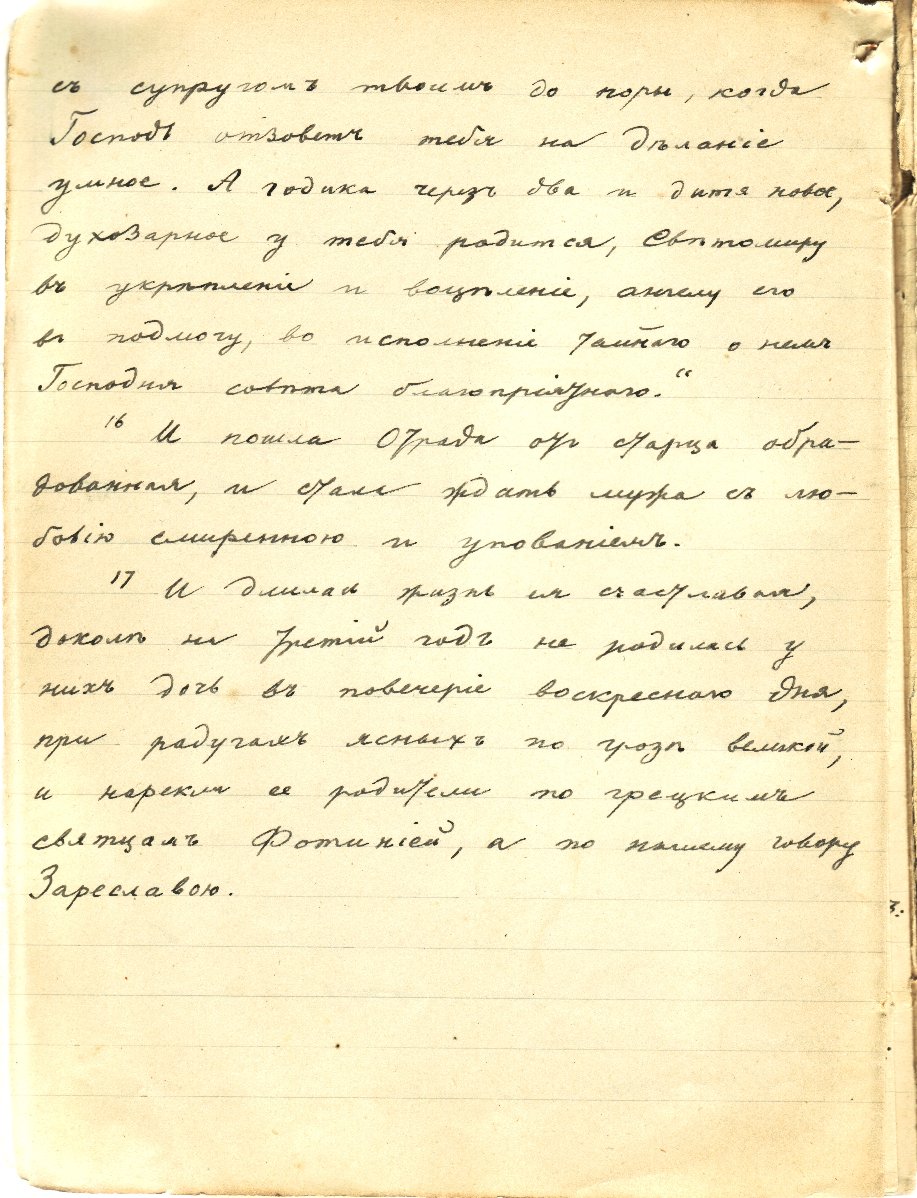 съ супругомъ твоимъ до поры, когда
Господь отзоветъ тебя на дѣланіе
умное. А годика черезъ два и дитя новое,
духозарное у тебя родится, Свѣтомиру
въ укрѣпленіе и воцѣленіе, ангелу его
въ подмогу, во исполненіе тайнаго о немъ
Господня совѣта благопріятнаго.“
16 И пошла Отрада отъ старца обра-
дованная, и стала ждать мужа съ лю-
бовію смиренною и упованіемъ.
17 И длилась жизнь ея счастливая,
доколѣ на третій годъ не родилась у
нихъ дочь въ повечеріе воскреснаго дня,
при радугахъ ясныхъ по грозѣ великой,
и нарекли ее родители по грецкимъ
святцамъ Фотиніей, а по нашему говору
Зареславою.